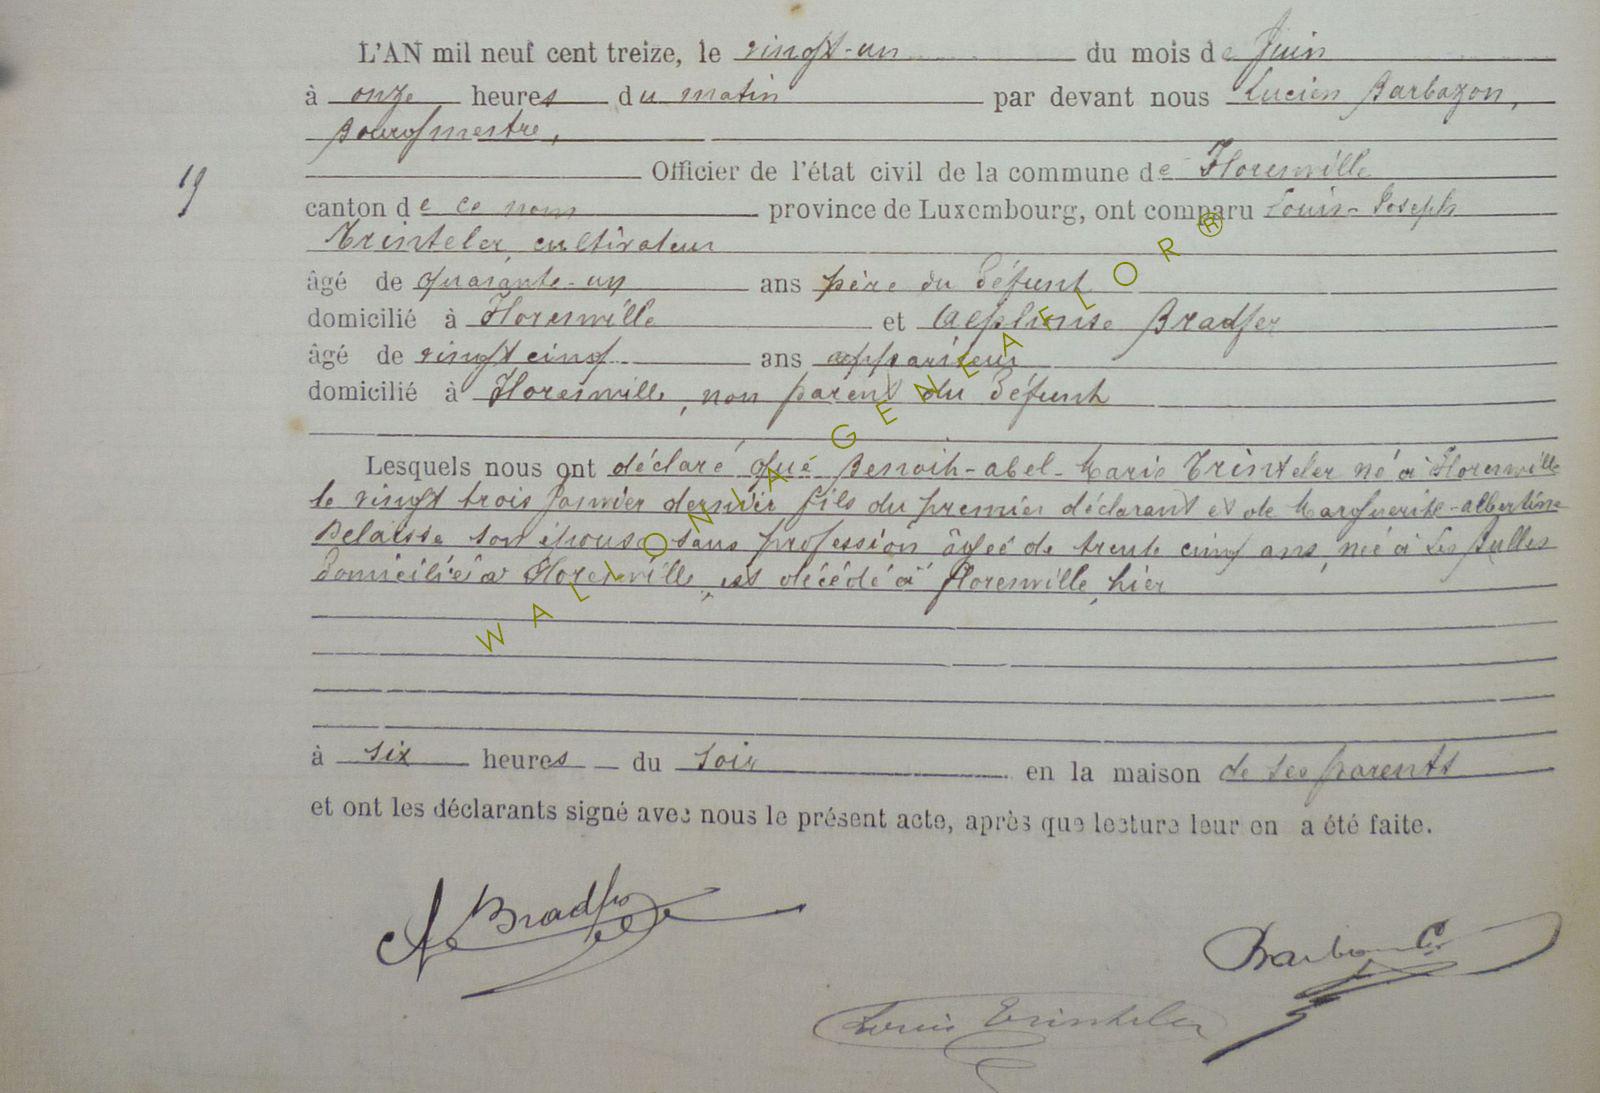 L'AN mil neuf cent treize, le vingt-un du mois de Juin
à onze heures du matin par devant nous Lucien Barbazon,
Bourgmestre,
Officier de l'état civil de la commune de Florenville
19
canton de ce nom province de Luxembourg, ont comparu Louis-Joseph
Trinteler, cultivateur
âgé de quarante-un ans père du défunt
domicilié à Florenville et Alphonse Bradfer
âgé de vingt cinq ans appariteur
domicilié à Florenville, non parent du défunt
Lesquels nous ont déclaré que Benoit-abel-Marie Trinteler né à Florenville
le vingt trois Janvier dernier fils du premier déclarant et de Marguerite-albertine
Delaisse son épouse sans profession âgée de trente cinq ans, née à Les Bulles
domiciliée à Florenville, est décédé à Florenville, hier
à six heures du soir en la maison de ses parents
et ont les déclarants signé avec nous le présent acte, après que lecture leur en a été faite.
A Bradfer
Louis Trinteler
WALLONIA GENEAFLOR ®